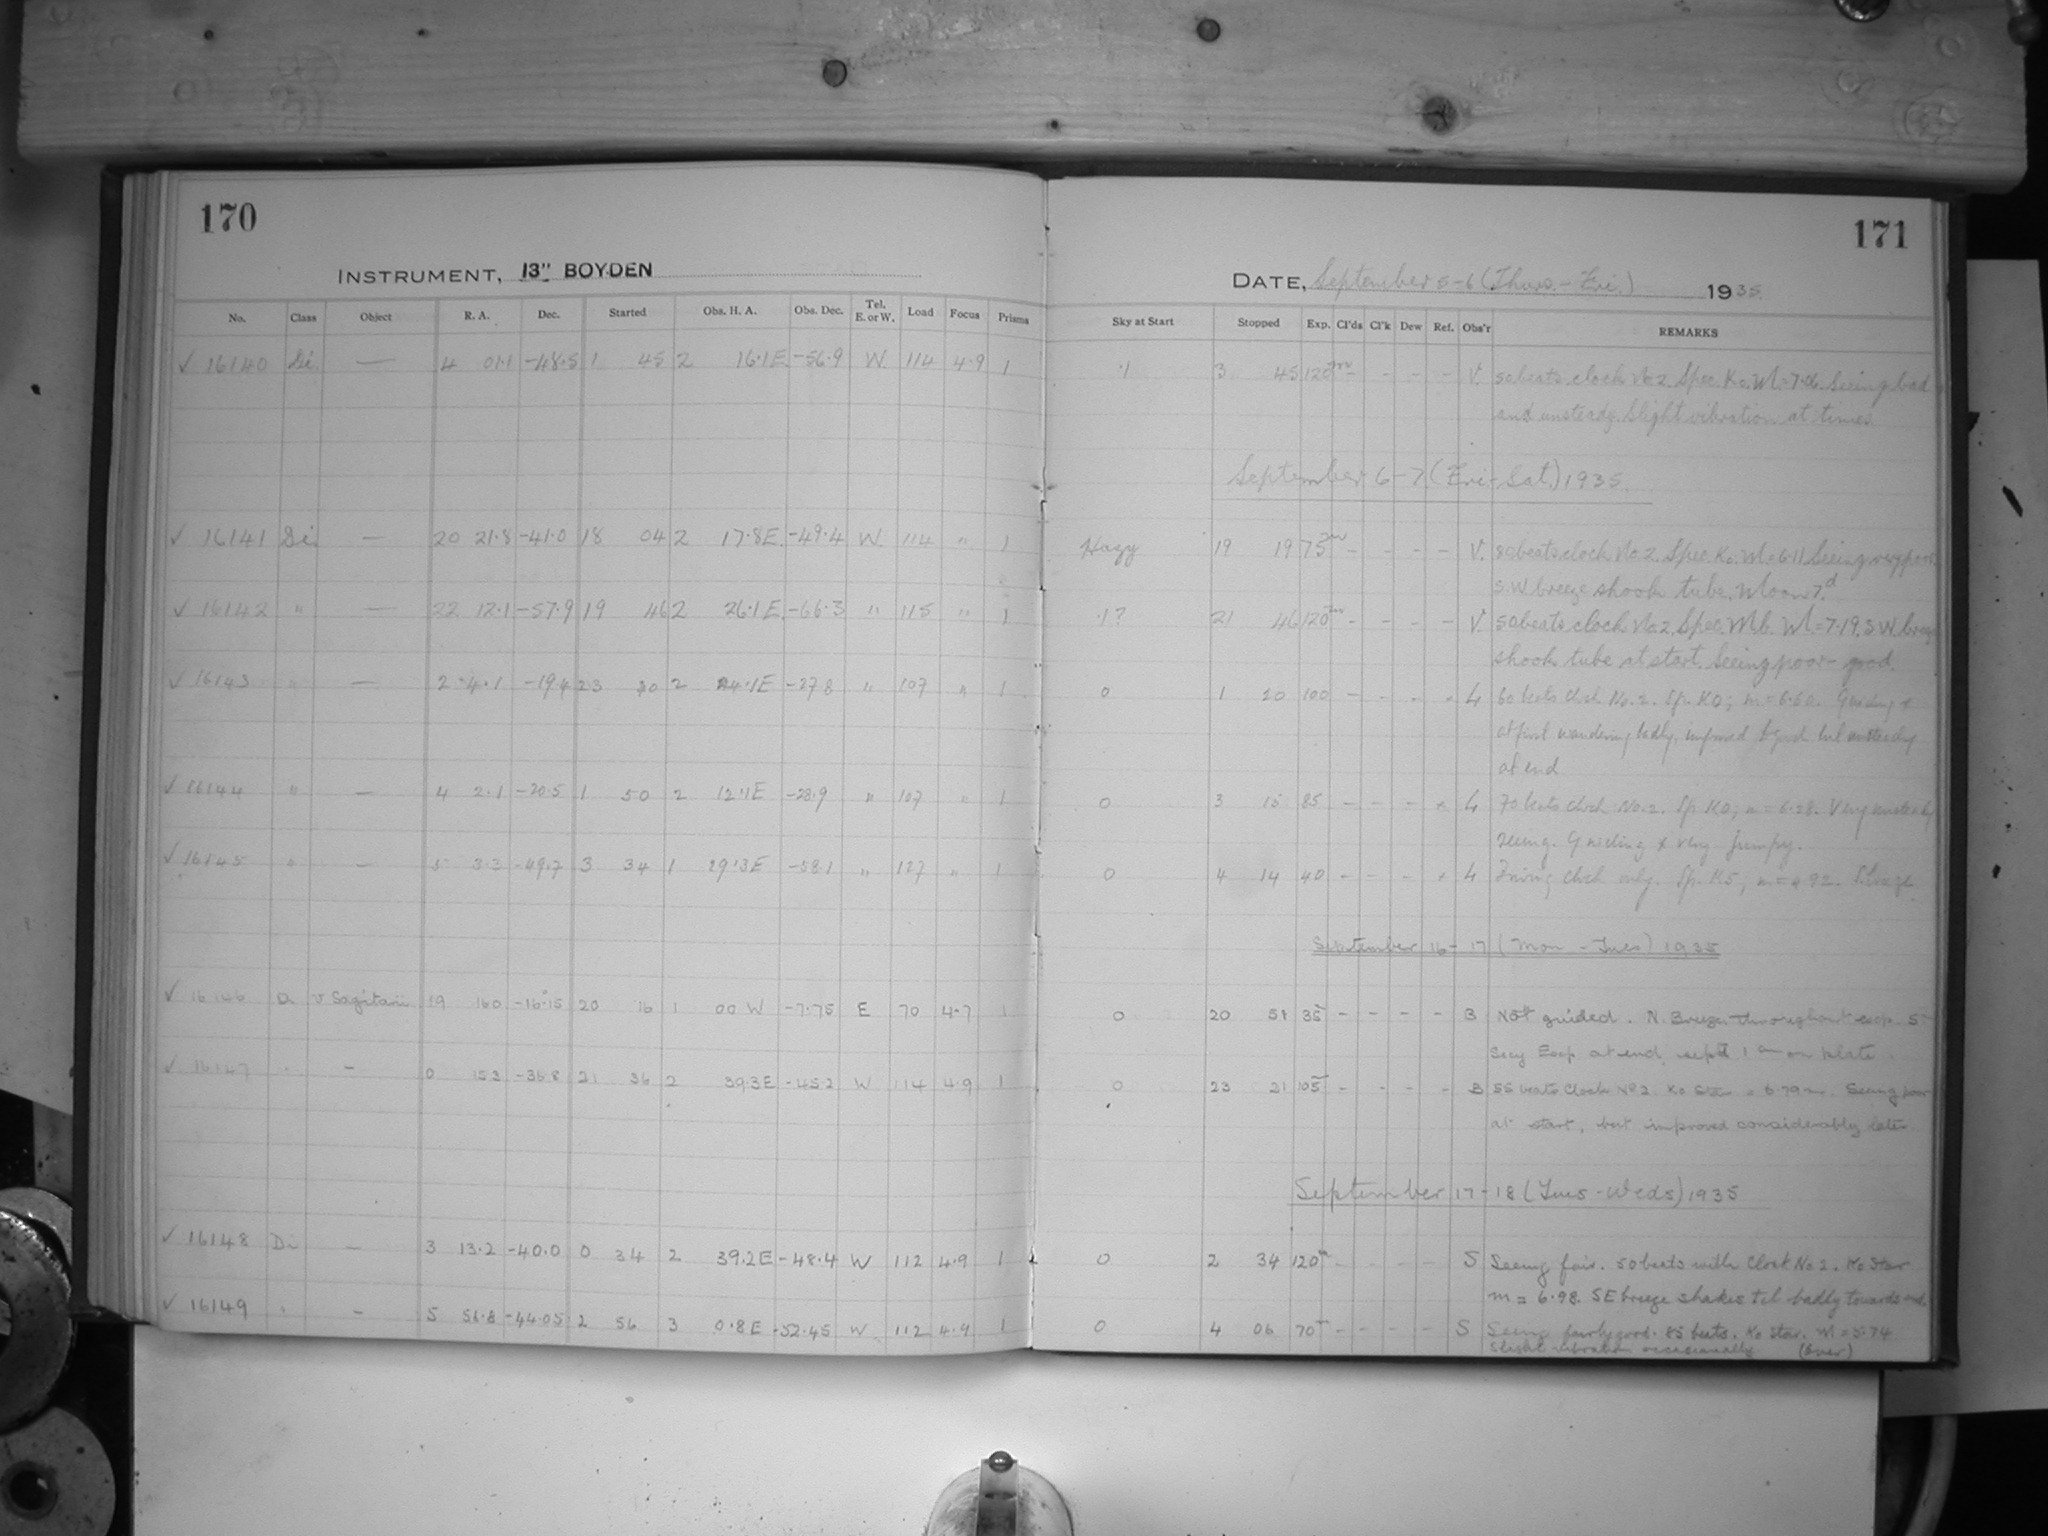 170
171
INSTRUMENT, 13" BOYDEN
DATE, September 5-6 (Thurs. - Fri.) 1935
No. Class Object R. A. Dec. Started Obs. H. A. Obs. Dec. Tel. E. or W. Load Focus Prisms Sky at Start Stopped Exp. Cl'ds Cl'k Dew Ref. Obs'r REMARKS
✓ 16140 Di. — 4 01.1 -48.5 1 45 2 16.1E -56.9 W. 114 4.9 1 .1 3 45 120 - - - - V. 50 beats clock No.2. Spec. Ko. M.=7.06. Seeing bad
and unsteady. Slight vibration at times
September 6-7 (Fri-Sat.) 1935.
✓ 16141 Di. — 20 21.8 -41.0 18 04 2 17.8E. -49.4 W. 114 " 1 Hazy 19 19 75 - - - - V. 80 beats clock No.2. Spec. Ko. M.=6.11 Seeing very poor.
S.W breeze shook tube. Moon 7d
✓ 16142 " — 22 12.1 -57.9 19 46 2 26.1E. -66.3 " 115 " 1 .1? 21 46 120 - - - - V 50 beats clock No.2. Spec. Mb. M.=7.19. SW breeze
shook tube at start. Seeing poor - good.
✓ 16143 " — 2 4.1 -19.4 23 40 2 24.1E -27.8 " 107 " 1 0 1 20 100 - - - L 60 beats clock No.2. Sp. K0; m=6.60. Guiding
at first wandering badly, improved but unsteady
at end
✓ 16144 " — 4 2.1 -20.5 1 50 2 12.1E -28.9 " 107 " 1 0 3 15 85 - - - L 70 beats clock No.2. Sp. K0; m=6.28. Very unsteady
seeing. Guiding very jumpy.
✓ 16145 " — 5 3.3 -49.7 3 34 1 29.3E -58.1 " 127 " 1 0 4 14 40 - - - L Driving clock only. Sp. K5; m=4.92.
September 16-17 (Mon - Tues) 1935
✓ 16146 D. v Sagitarii 19 16.0 -16.15 20 16 1 00 W -7.75 E 70 4.7 1 0 20 51 35 - - - - B Not guided. N. Breeze throughout exp. 5
Secy Exp at end, sep'd 1 cm on plate.
✓ 16147 " — 0 15.3 -36.8 21 36 2 39.3E -45.2 W 114 4.9 1 0 23 21 105 - - - - B 55 beats Clock No 2. Ko Star = 6.79m. Seeing poor
at start, but improved considerably later
September 17-18 (Tues - Weds) 1935
✓ 16148 Di — 3 13.2 -40.0 0 34 2 39.2E -48.4 W 112 4.9 1 0 2 34 120m - - - - S Seeing fair. 50 beats with Clock No 2. Ko Star
m = 6.98. SE breeze shakes tel. badly towards end.
✓ 16149 " — 5 56.8 -44.05 2 56 3 0.8E -52.45 W 112 4.9 1 0 4 06 70m - - - - S Seeing fairly good. 85 beats. Ko star. M=5.74
Slight vibration occasionally (over)